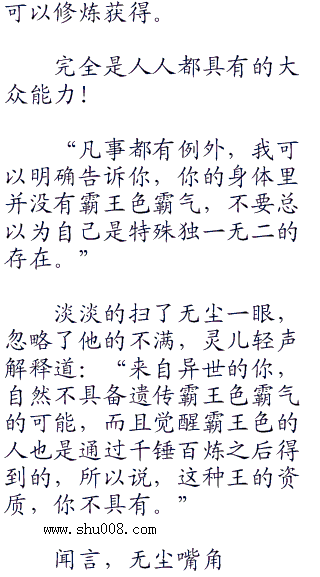 可以修炼获得。
完全是人人都具有的大
众能力！
“凡事都有例外，我可
以明确告诉你，你的身体里
并没有霸王色霸气，不要总
以为自己是特殊独一无二的
存在。”
淡淡的扫了无尘一眼，
忽略了他的不满，灵儿轻声
解释道：“来自异世的你，
自然不具备遗传霸王色霸气
的可能，而且觉醒霸王色的
人也是通过千锤百炼之后得
到的，所以说，这种王的资
质，你不具有。”
www.shu008.com
闻言，无尘嘴角